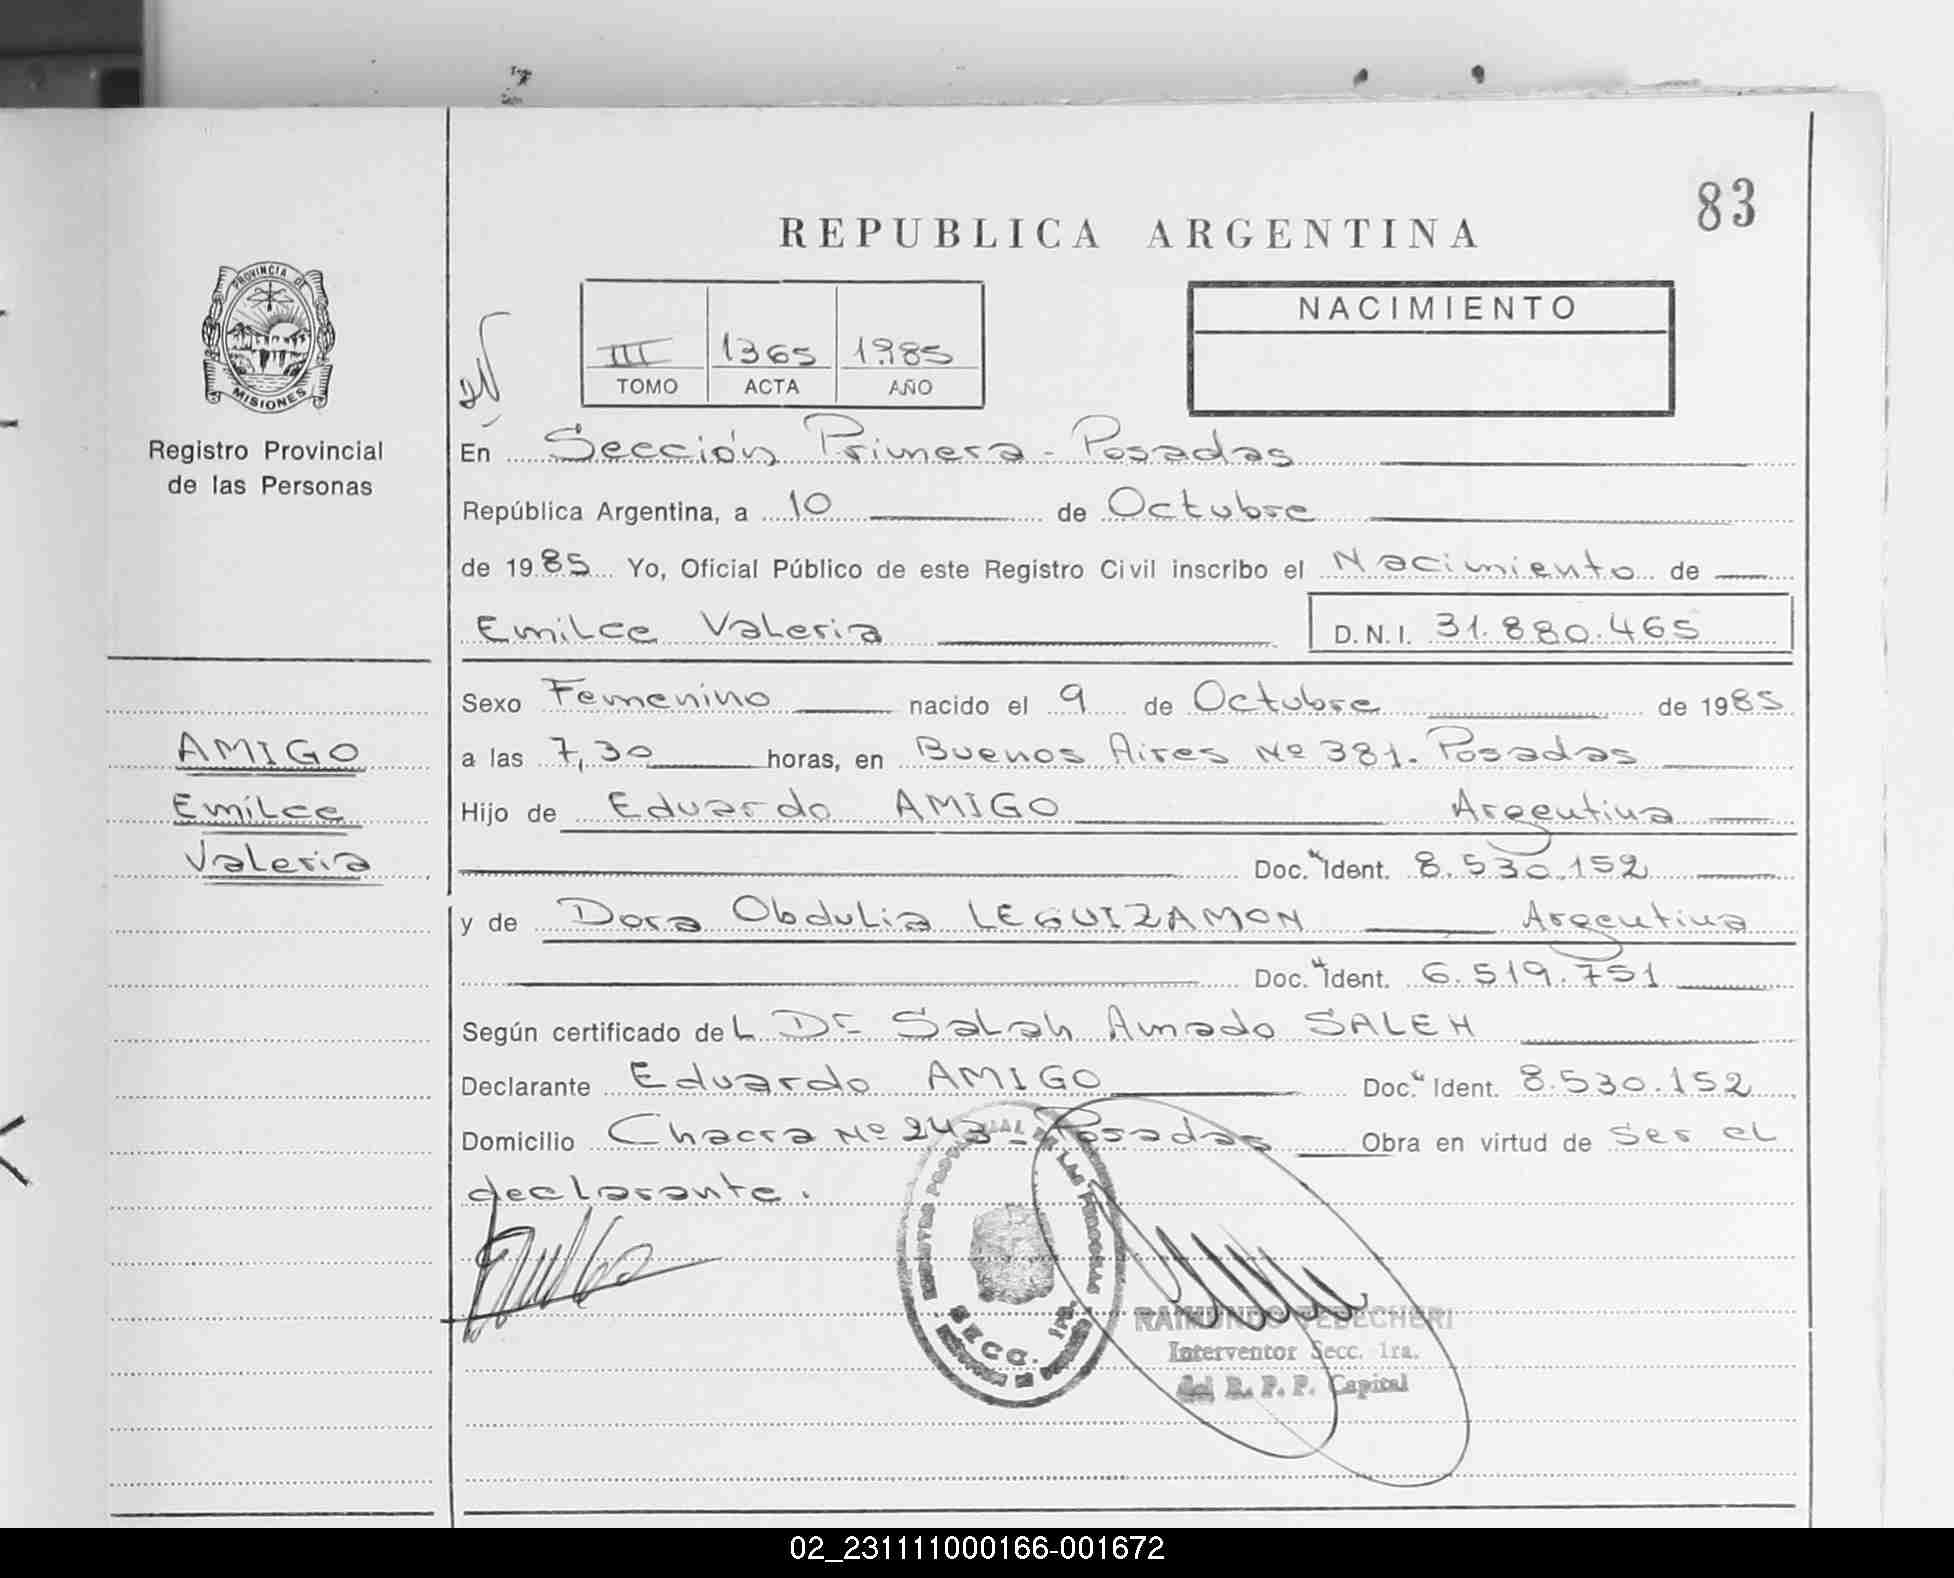 83
REPUBLICA ARGENTINA
PROVINCIA DE
MISIONES
Registro Provincial
de las Personas
III 1365 1985
TOMO ACTA AÑO
NACIMIENTO
En Sección Primera - Posadas
República Argentina, a 10 de Octubre
de 1985 Yo, Oficial Público de este Registro Civil inscribo el Nacimiento de
Emilce Valeria D.N.I. 31.880.465
Sexo Femenino nacido el 9 de Octubre de 1985
AMIGO
Emilce
Valeria
a las 7,30 horas, en Buenos Aires Nº 381. Posadas
Hijo de Eduardo AMIGO Argentina
Doc. Ident. 8.530.152
y de Dora Obdulia LEGUIZAMON Argentina
Doc. Ident. 6.519.751
Según certificado del Dr Salah Amado SALEH
Declarante Eduardo AMIGO Doc. Ident. 8.530.152
Domicilio Chacra Nº 243 - Posadas Obra en virtud de ser el
declarante.
SECC. 1RA.
RAIMUNDO
Interventor Secc. 1ra.
del R. P. P. Capital
02_231111000166-001672